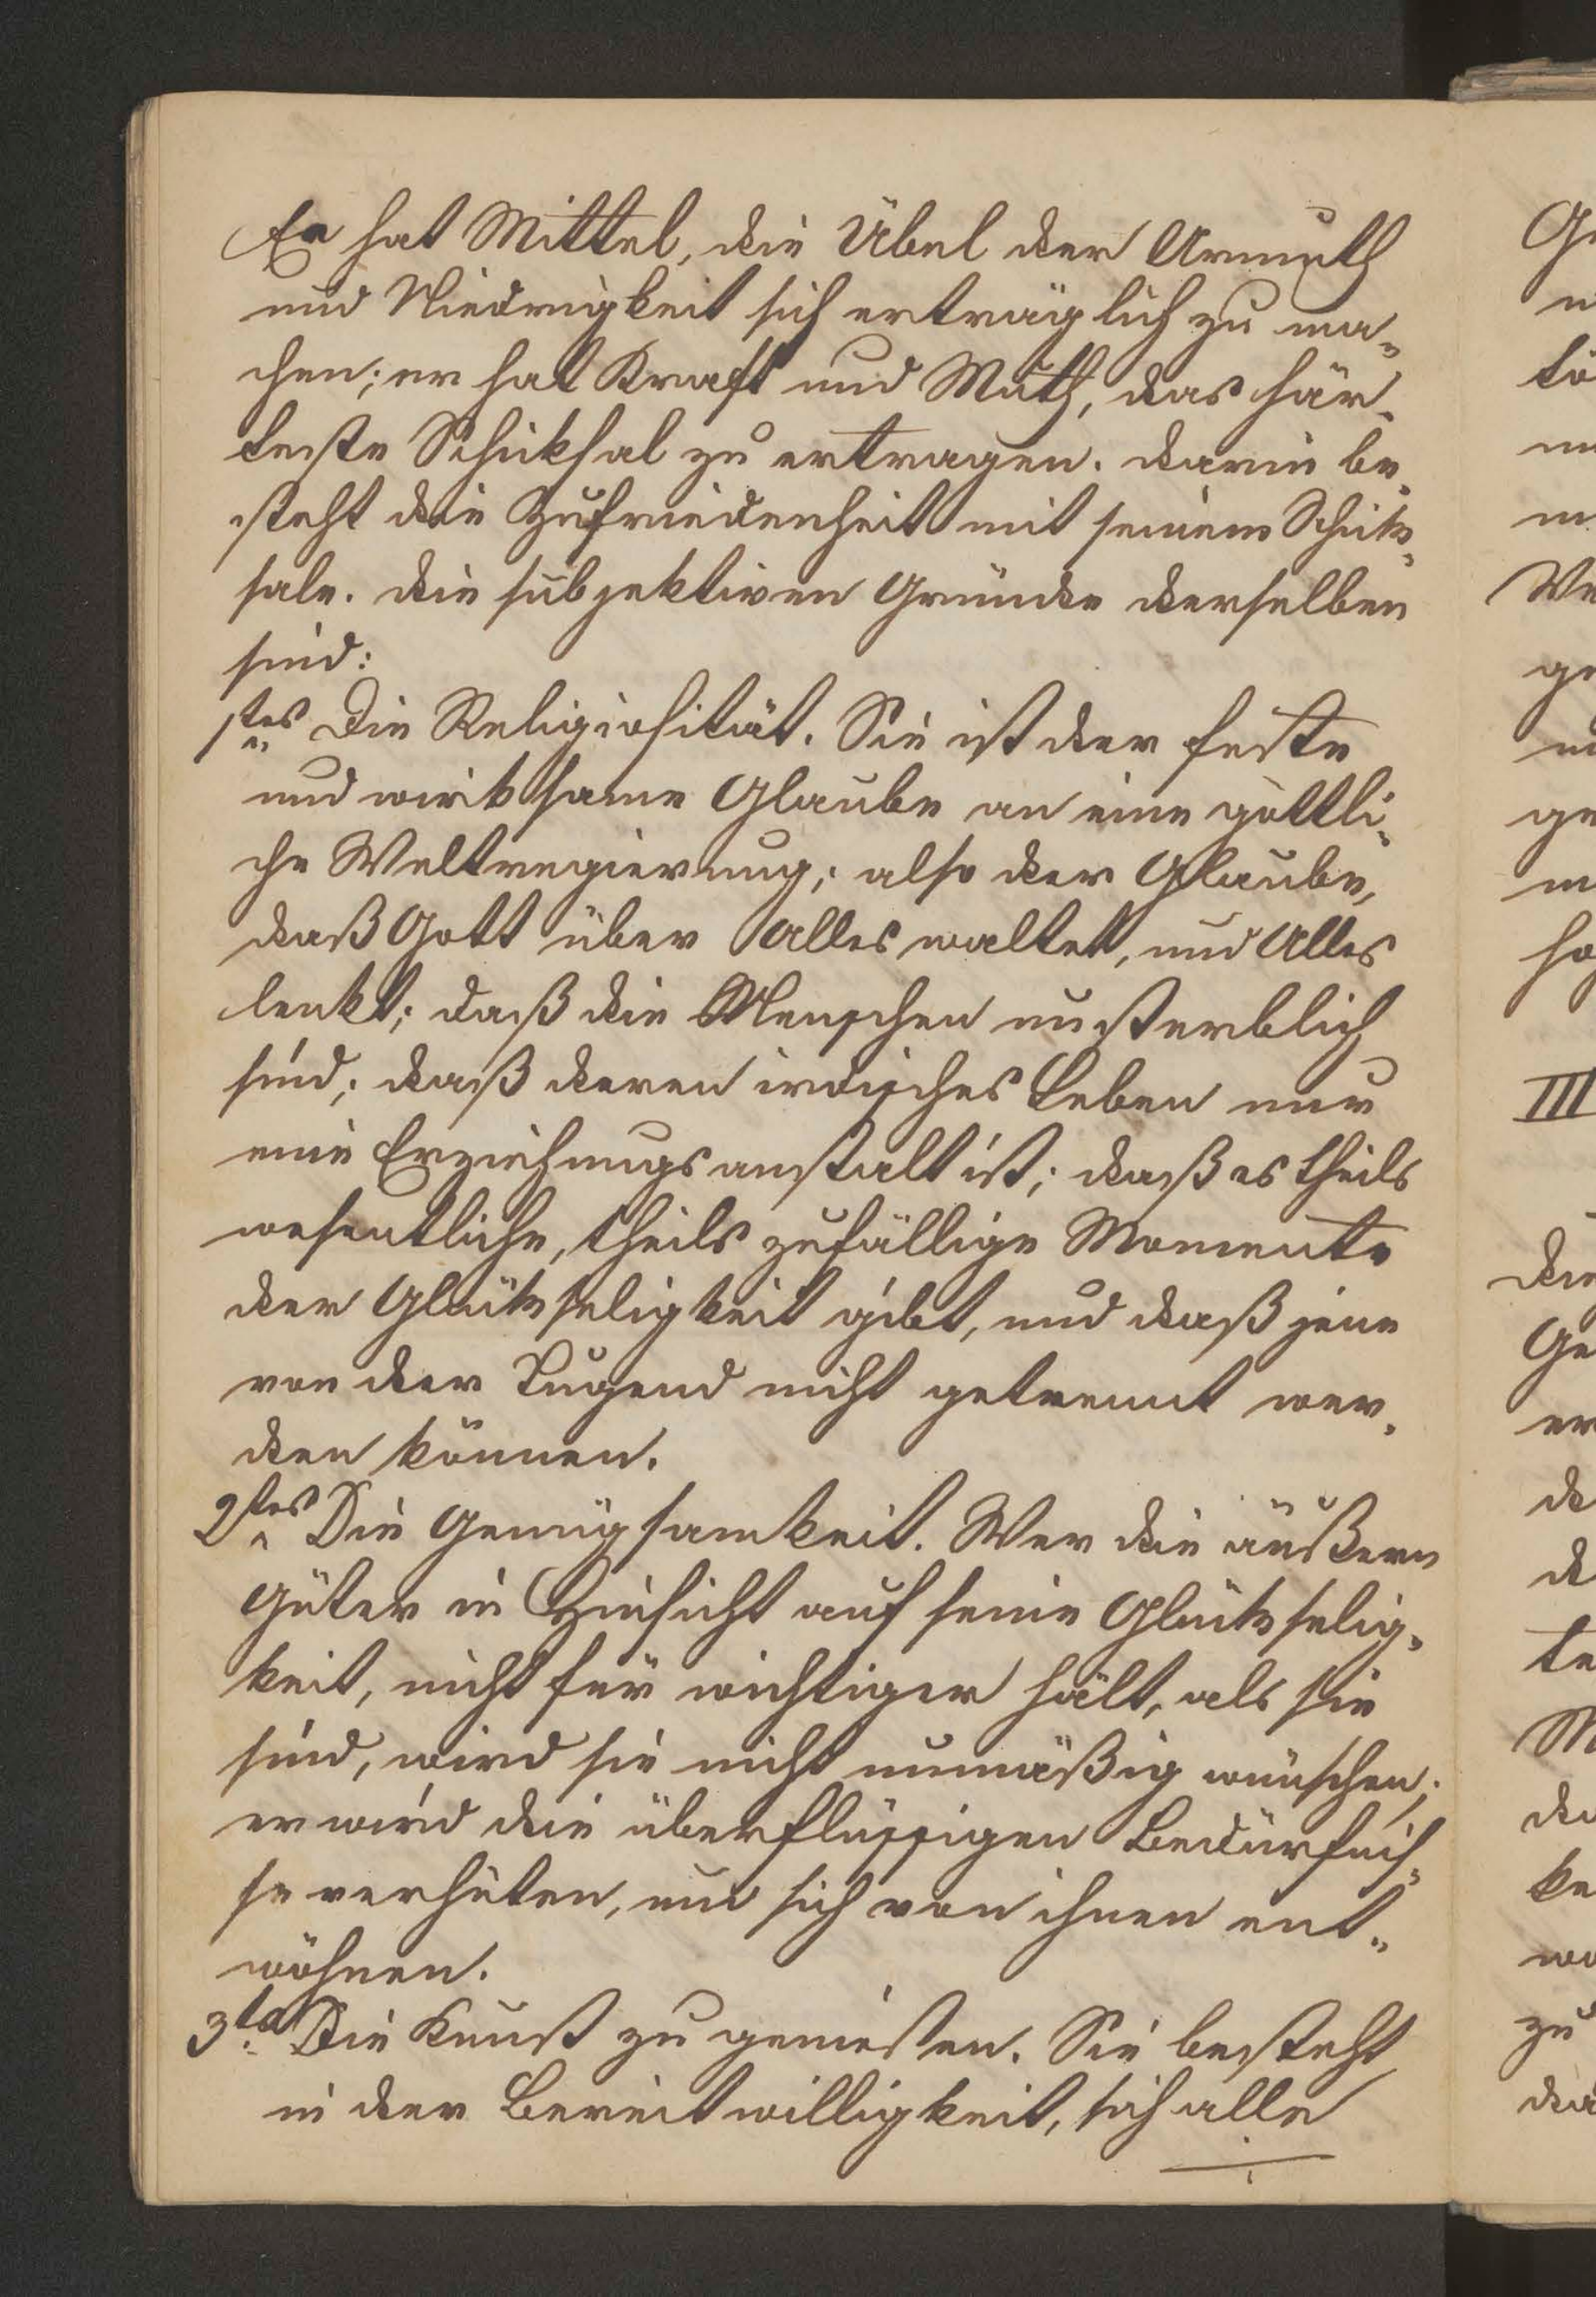 Er hat Mittel, die Übel der Armuth
und Niedrigkeit sich erträglich zu ma-
chen; er hat Kraft und Muth, das här-
teste Schiksal zu ertragen. Darin be-
steht die Zufriedenheit mit seinem Schik-
sale. Die subjektiven Gründe derselben
sind:
1tes Die Religiosität. Sie ist der feste
und wirksame Glaube an eine göttli-
che Weltregierung; also der Glaube,
daß Gott über Alles waltet, und Alles
lenkt; daß die Menschen unsterblich
sind; daß deren irdisches Leben nur
eine Erziehungsanstalt ist; daß es theils
wesentliche, theils zufällige Momente
der Glükseligkeit gibt, und daß jene
von der Tugend nicht getrennt wer-
den können.
2tes Die Genügsamkeit. Wer die äußern
Güter in Hinsicht auf seine Glükselig-
keit, nicht für wichtiger hält, als sie
sind, wird sie nicht unmäßig wünschen;
er wird die überflüssigen Bedürfniß-
se verhüten, und sich von ihnen ent-
wöhnen.
3tes Die Kunst zu genießen. Sie besteht
in der Bereitwilligkeit, sich alle
III